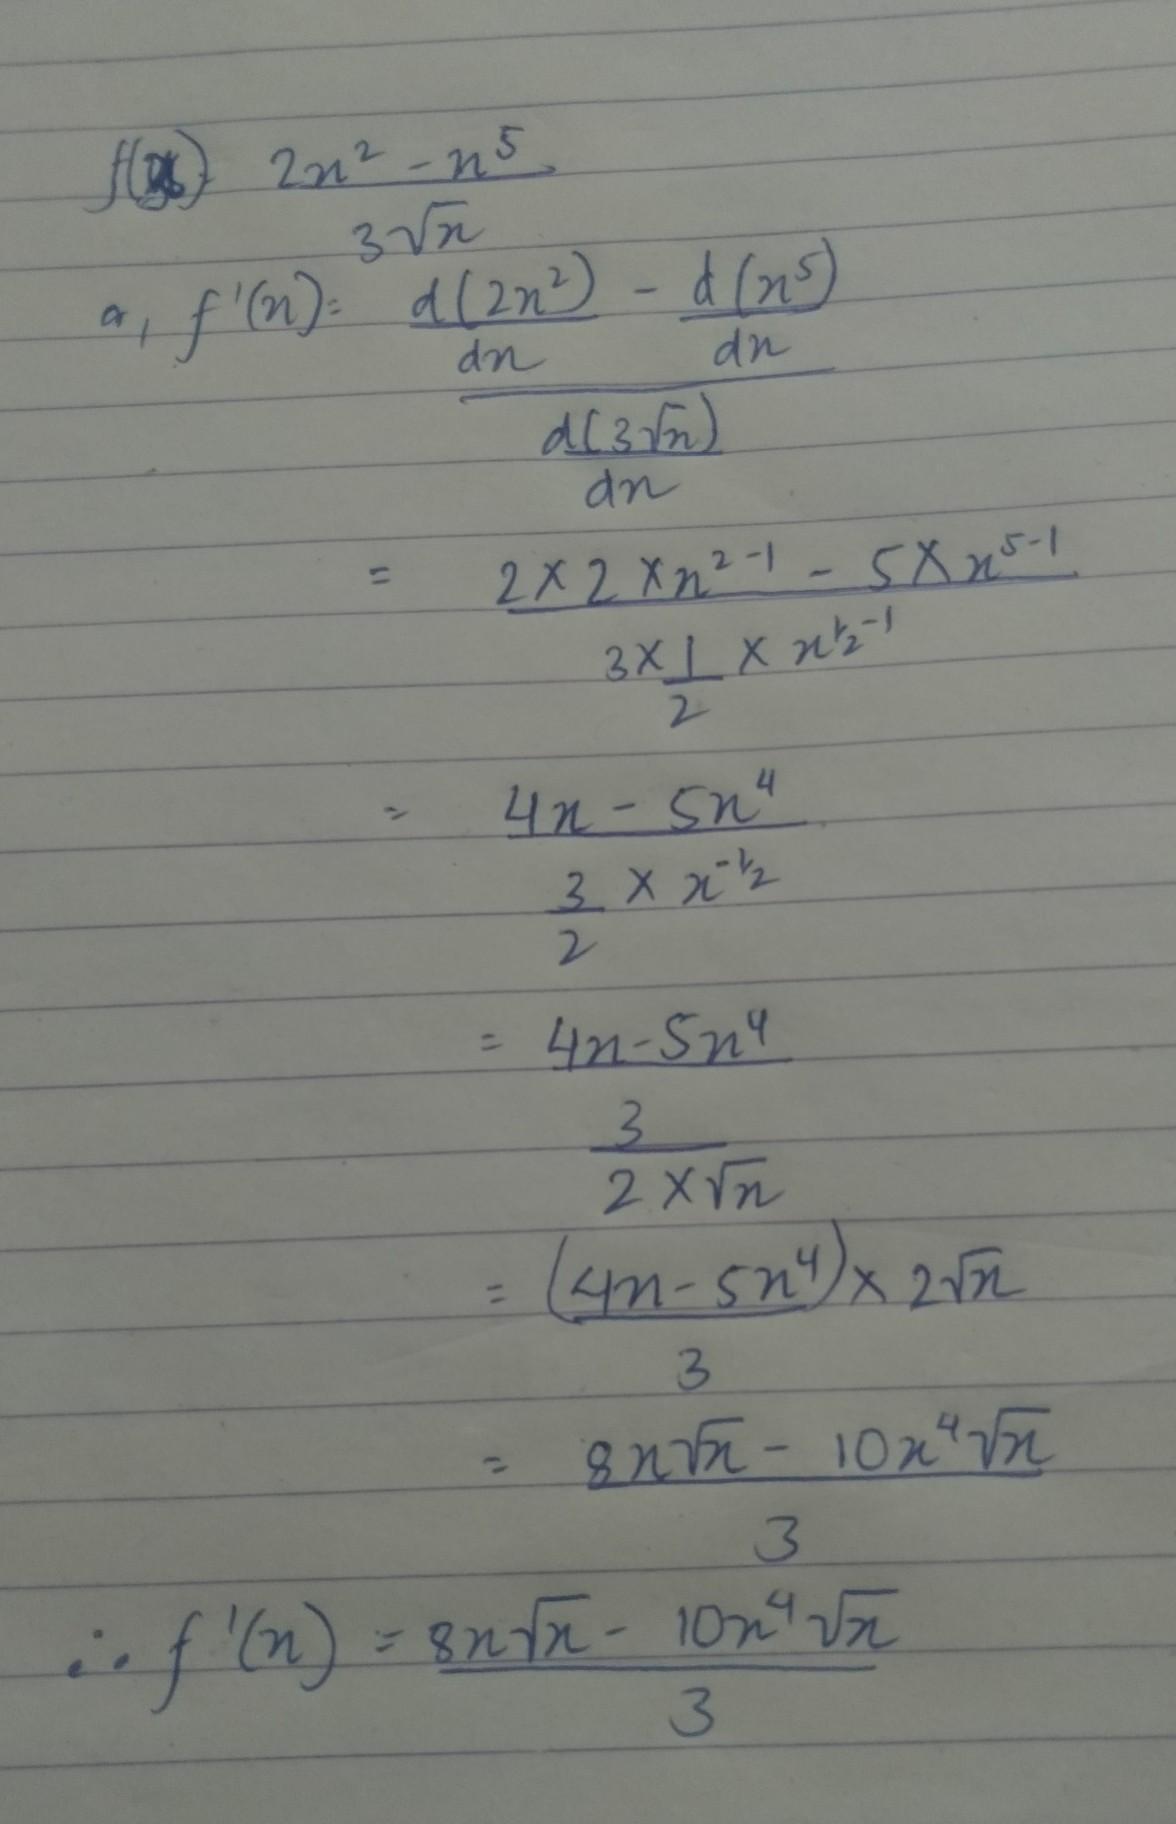 f(x) 2x² - x⁵
3√x
or, f'(x) = d(2x²) - d(x⁵)
dx dx
d(3√x)
dx
= 2 × 2 × x²⁻¹ - 5 × x⁵⁻¹
3 × 1/2 × x^(1/2-1)
= 4x - 5x⁴
3/2 × x^(-1/2)
= 4x - 5x⁴
3
2 × √x
= (4x - 5x⁴) × 2√x
3
= 8x√x - 10x⁴√x
3
∴ f'(x) = 8x√x - 10x⁴√x
3